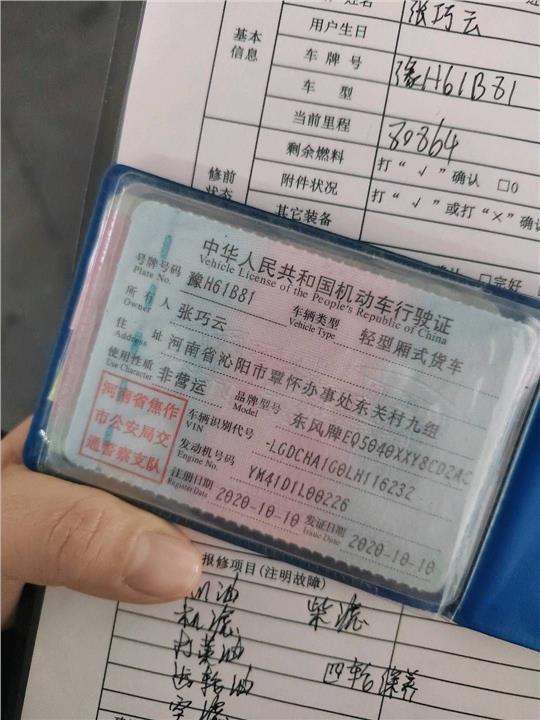 姓名 张巧云
基本信息
用户生日
车牌号 豫H61B81
车型
当前里程 80864
剩余燃料 打“√”确认 □0
修前状态
附件状况 打“√”或打“×”确
其它装备
□完好
中华人民共和国机动车行驶证
Vehicle License of the People's Republic of China
号牌号码 豫H61B81 车辆类型 轻型厢式货车
Plate No. Vehicle Type
所有人 张巧云
Owner
住址 河南省沁阳市覃怀办事处东关村九组
Address
使用性质 非营运 品牌型号 东风牌EQ5040XXY8CD2AC
Use Character Model
河南省焦作
市公安局交
通警察支队
车辆识别代号 LGDCHA1G0LH116232
VIN
发动机号码 YM41D1L00226
Engine No.
注册日期 2020-10-10 发证日期 2020-10-10
Register Date Issue Date
报修项目(注明故障)
机油 柴滤
机滤
打黄油
齿轮油 四轮保养
空滤